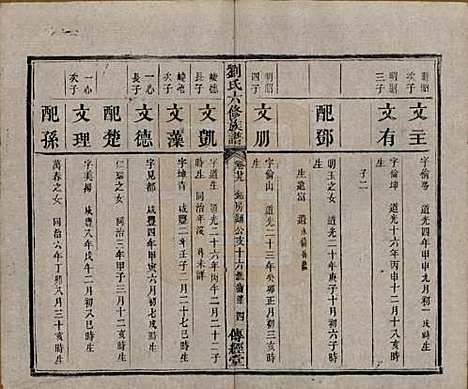 明昭
次子
文主
字倫房 道光四年甲申九月初一戌時生
明昭
三子
文有
字倫坤 道光十六年丙申十二月十一亥時生
子二
配鄧
明玉之女 道光二十年庚子十月初六子時生
生進富
明昭
四子
文朋
字倫山 道光二十三年癸卯正月初八亥時生
劉氏六修族譜
傳經堂
峻德
長子
文凱
字道生 道光二十六年丙午二月十二子時生 同治年沒 葬未詳
峻德
次子
文藻
字坤青 咸豐二年壬子二月二十七巳時生
一心
長子
文德
字見郎 咸豐四年甲寅六月初七戌時生
配楚
仁瑞之女 同治三年甲子三月十二亥時生
一心
次子
文理
字美揚 咸豐八年戊午二月初八巳時生
配孫
萬春之女 同治六年丁卯八月三十亥時生